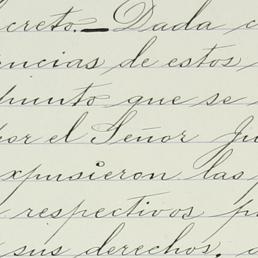 creto. — Dada c
encias de estos
punto que se
por el Señor Ju
xpusieron las
respectivos p
sus derechos, a